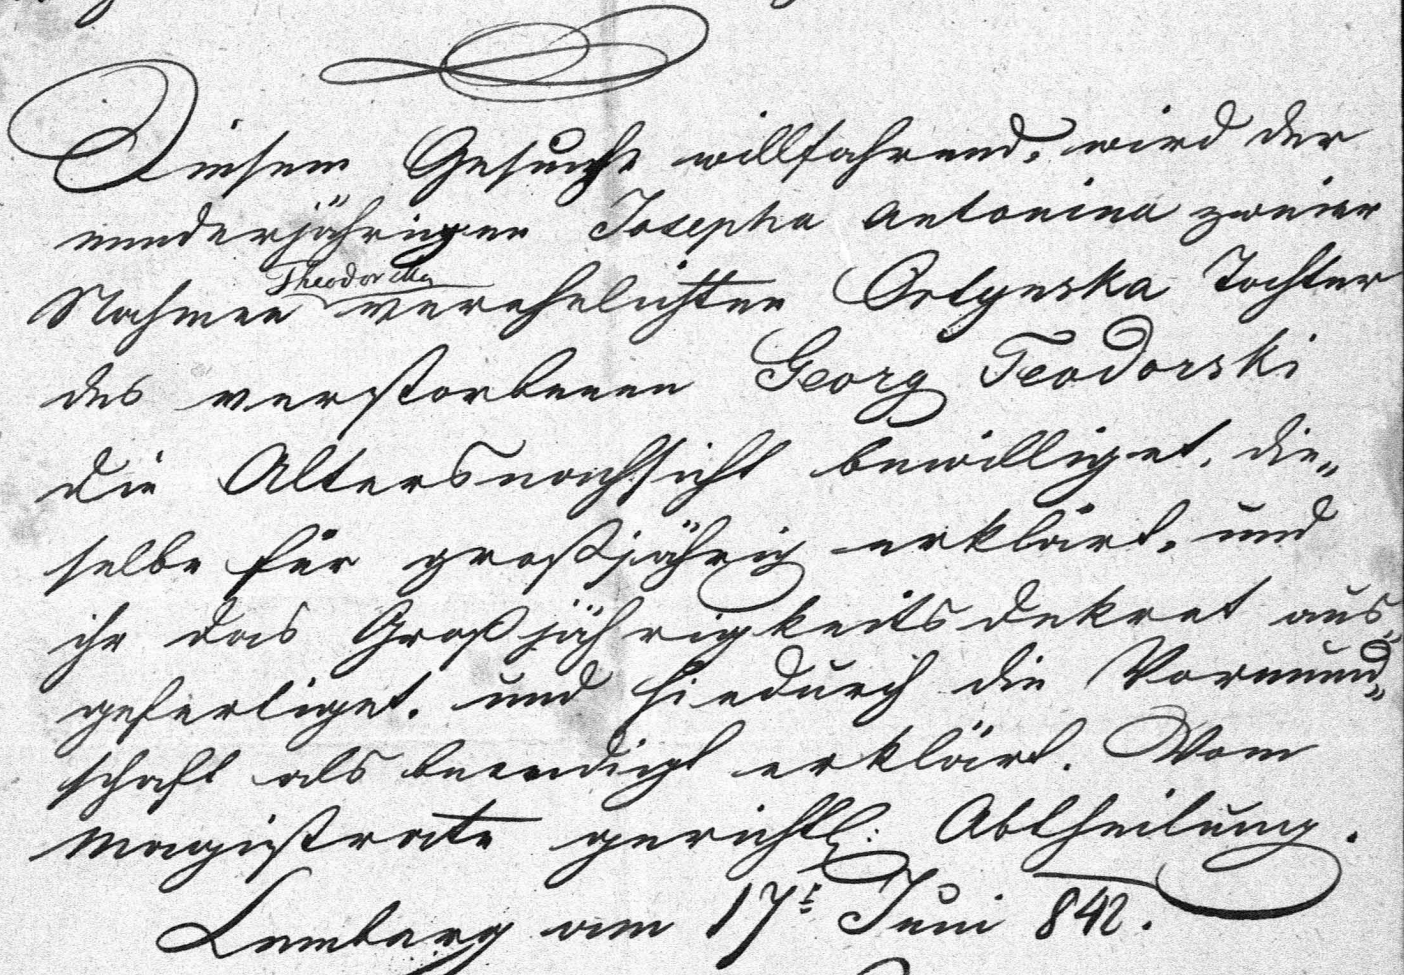 Diesem Gesuche willfahrend, wird der
minderjährigen Josepha Antonina zweier
Theodorska
Nahmen verehelichten Ortynska Tochter
des verstorbenen Georg Teodorski
die Altersnachsicht bewilliget, die„
selbe für großjährig erklärt, und
ihr das Großjährigkeitsdekret aus„
gefertiget, und hiedurch die Vormund„
schaft als beendigt erklärt. Vom
Magistrate gerichtl: Abtheilung.
Lemberg am 17t Juni 842.